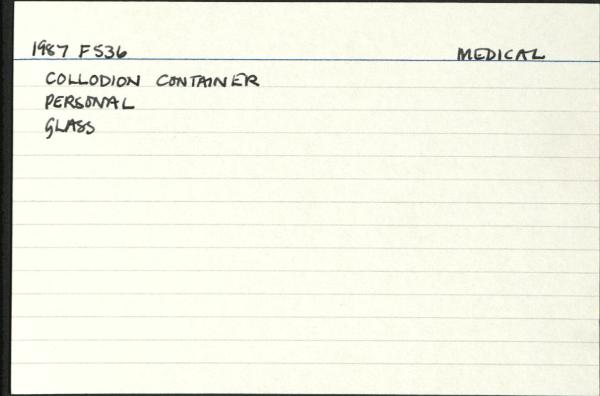 1987 F536 MEDICAL
COLLODION CONTAINER
PERSONAL
GLASS